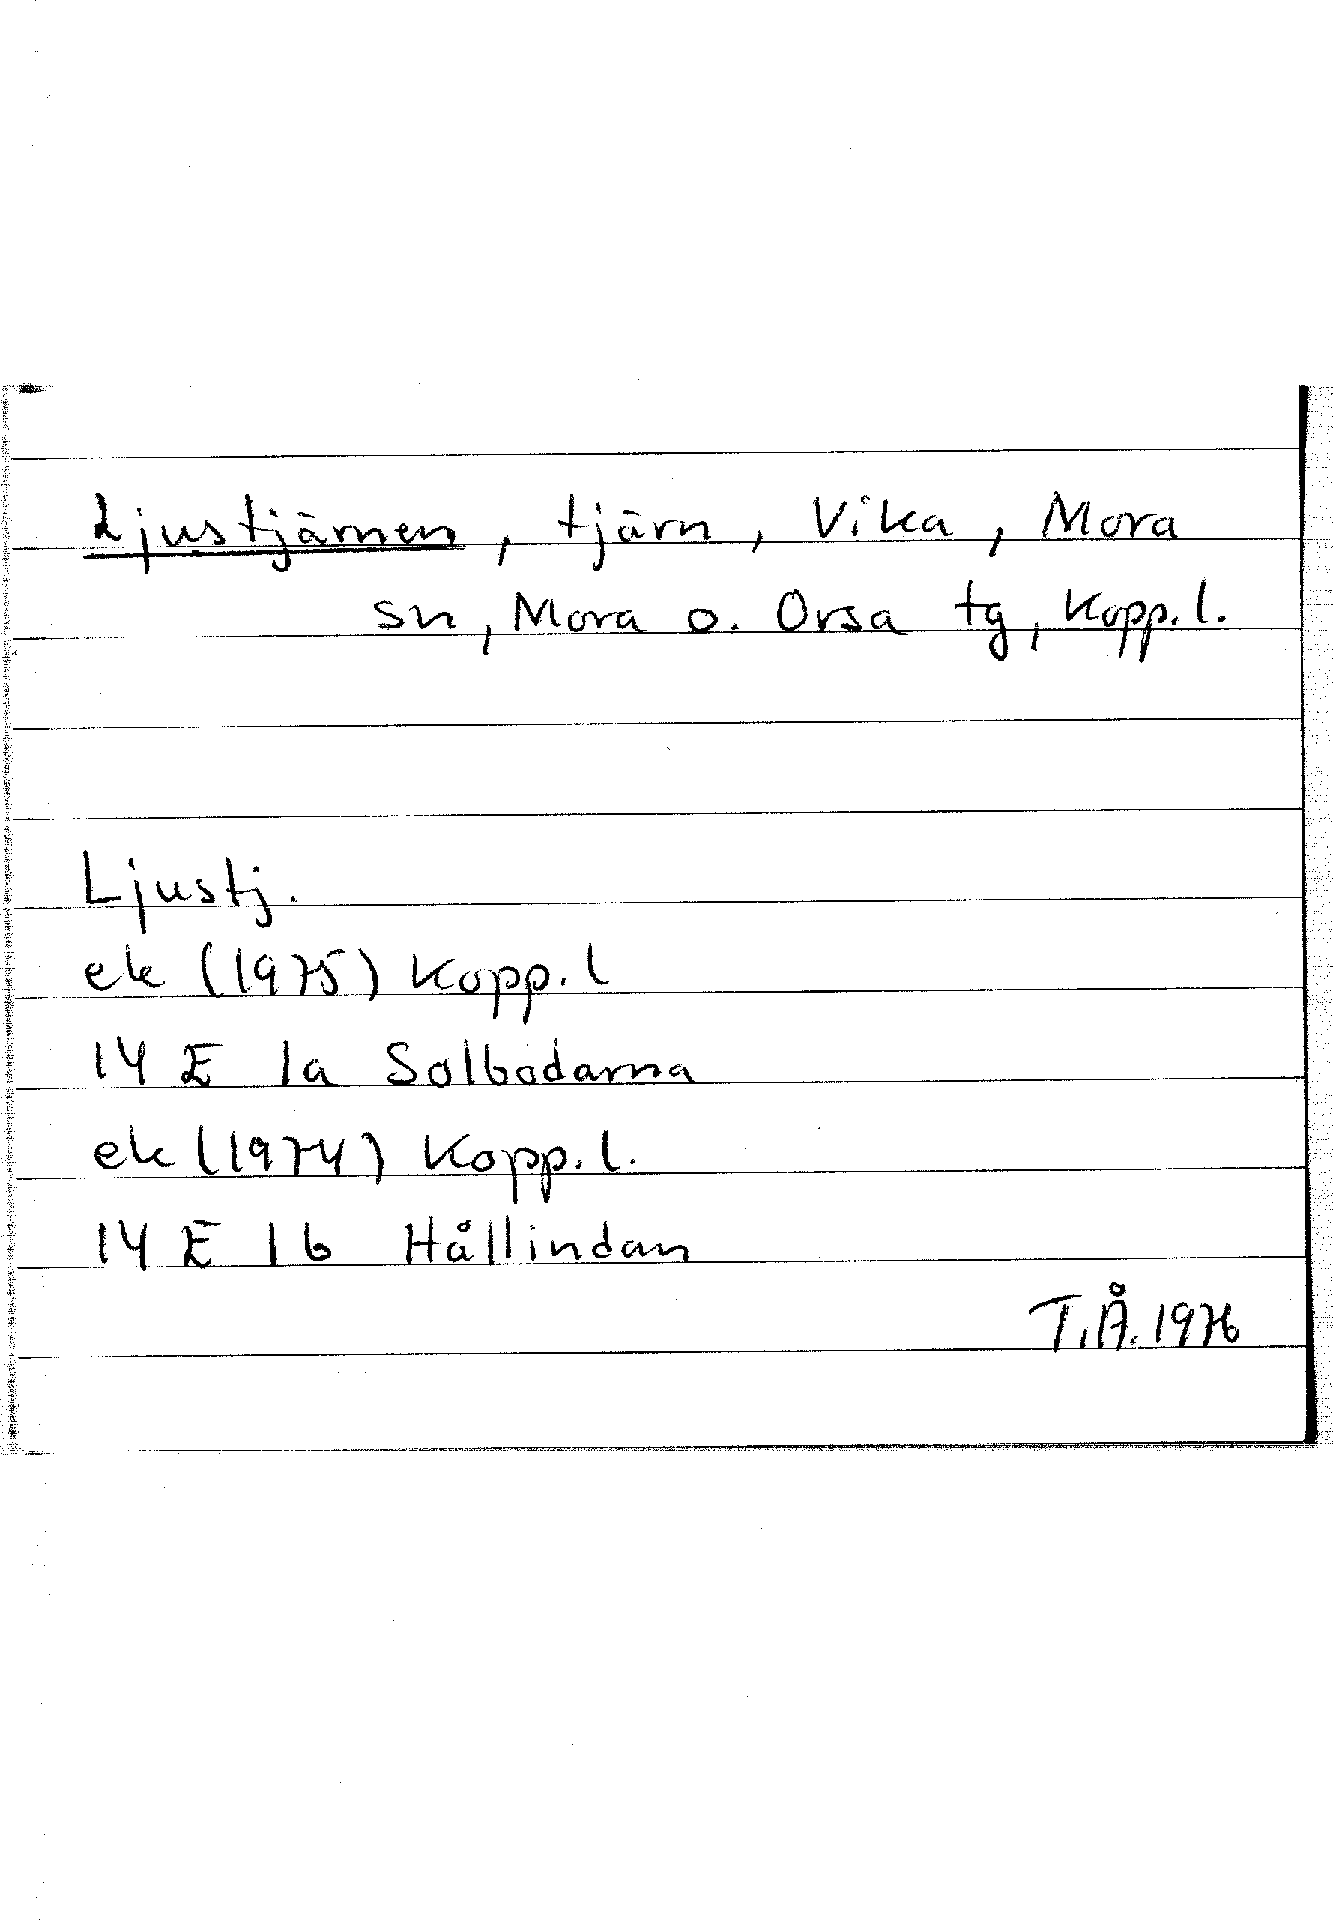 Ljustjärnen, tjärn, Vika, Mora
sn, Mora o. Orsa tg, Kopp.l.
Ljustj.
ek (1975) Kopp.l
14 E 1a Solbodarna
ek (1974) Kopp.l.
14 E 1b Hållindan
T.Å. 1976